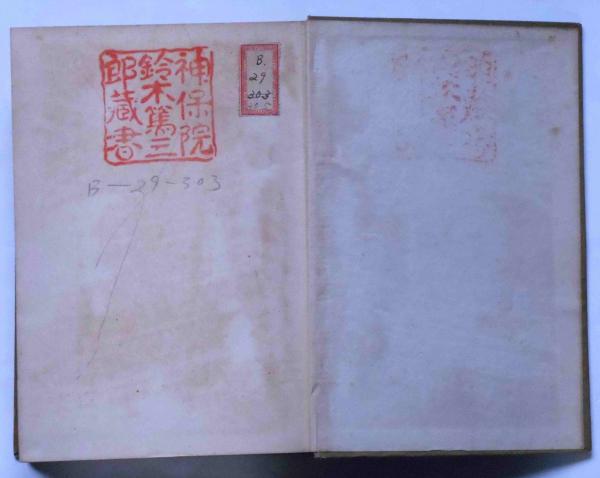 神保院
鈴木篤三
郎蔵書
B.
29
303
B-29-303